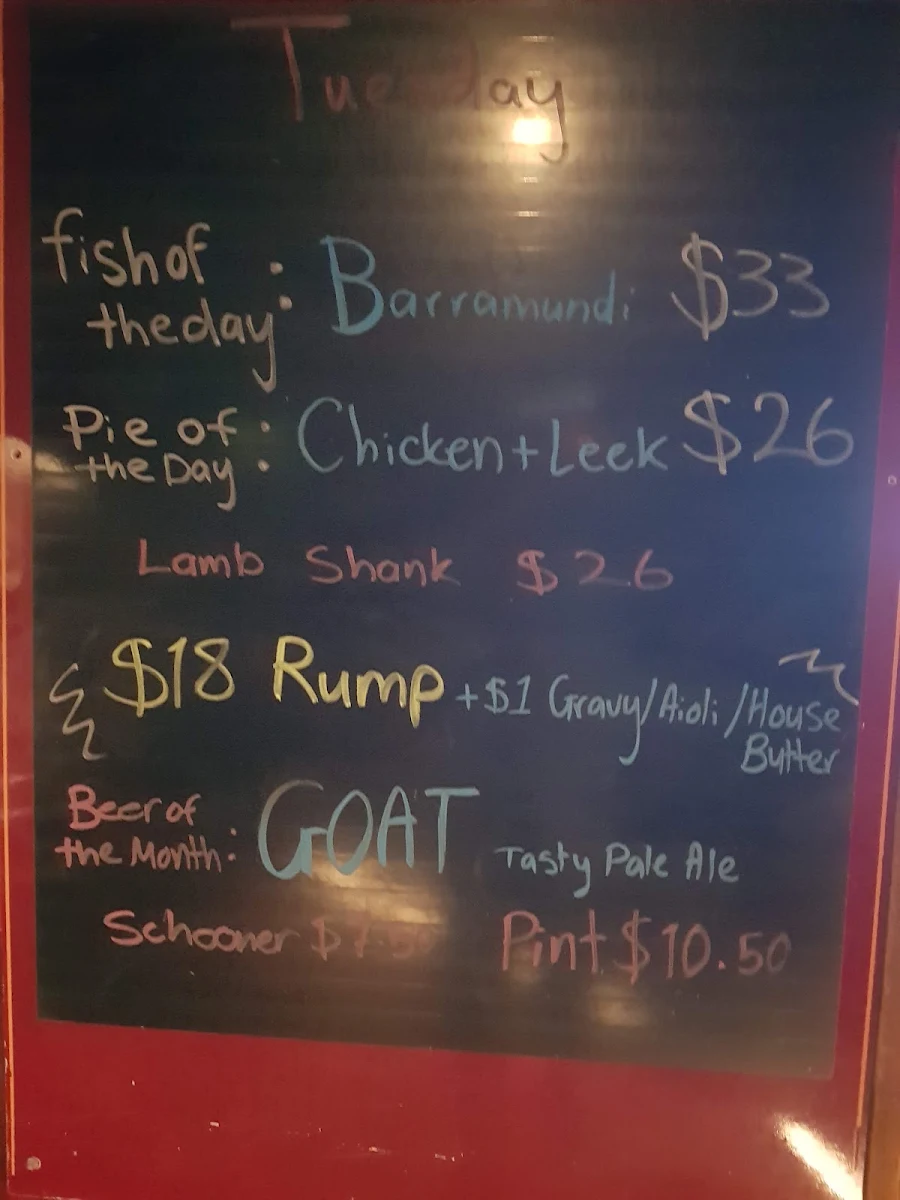 Tuesday
fish of
the day : Barramundi $33
Pie of
the Day : Chicken + Leek $26
Lamb Shank $26
$18 Rump + $1 Gravy/Aioli/House
Butter
Beer of
the Month : GOAT Tasty Pale Ale
Schooner $7.50 Pint $10.50